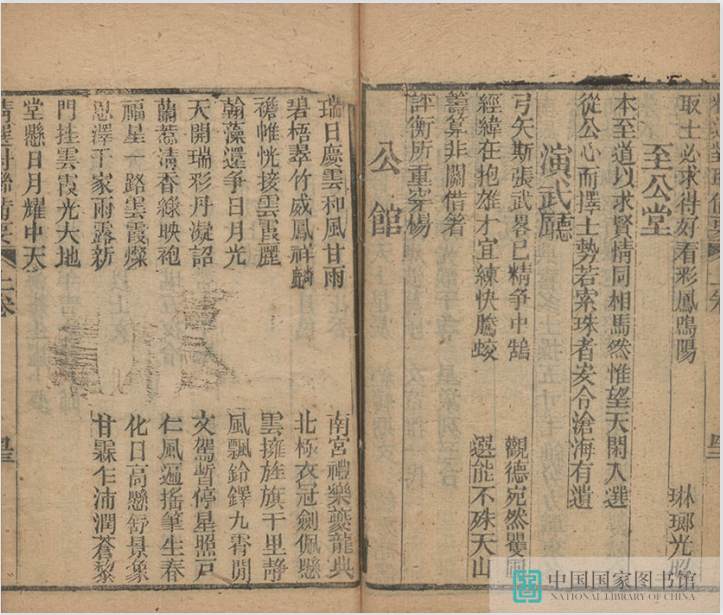 取士必求得好看彩鳳鳴陽
琳瑯光照
至公堂
本至道以求賢情同相馬然惟望天閑入選
從公心而擇士勢若索珠者妄令滄海有遺
演武廳
弓矢斯張武畧已精爭中鵠
觀德宛然矍圃
經緯在抱雄才宜練快騰蛟
選能不殊天山
籌算非關借箸
評衡所重穿楊
公館
瑞日慶雲和風甘雨
南宮禮樂夔龍典
碧梧翠竹威鳳祥麟
北極衣冠劍佩懸
襜帷恍接雲霞麗
雲擁旌旗千里靜
翰藻還爭日月光
風飄鈴鐸九霄閒
天開瑞彩丹凝詔
文駕暫停星照戸
蘭惹清香綠映袍
仁風遍搖筆生春
福星一路雲霞燦
化日高懸舒景象
恩澤千家雨露新
甘霖乍沛潤蒼黎
門挂雲霞光大地
堂懸日月耀中天
上卷
中国国家图书馆
NATIONAL LIBRARY OF CHINA